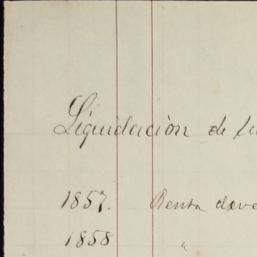 Liquidación de la
1857. Renta deve
1858 "